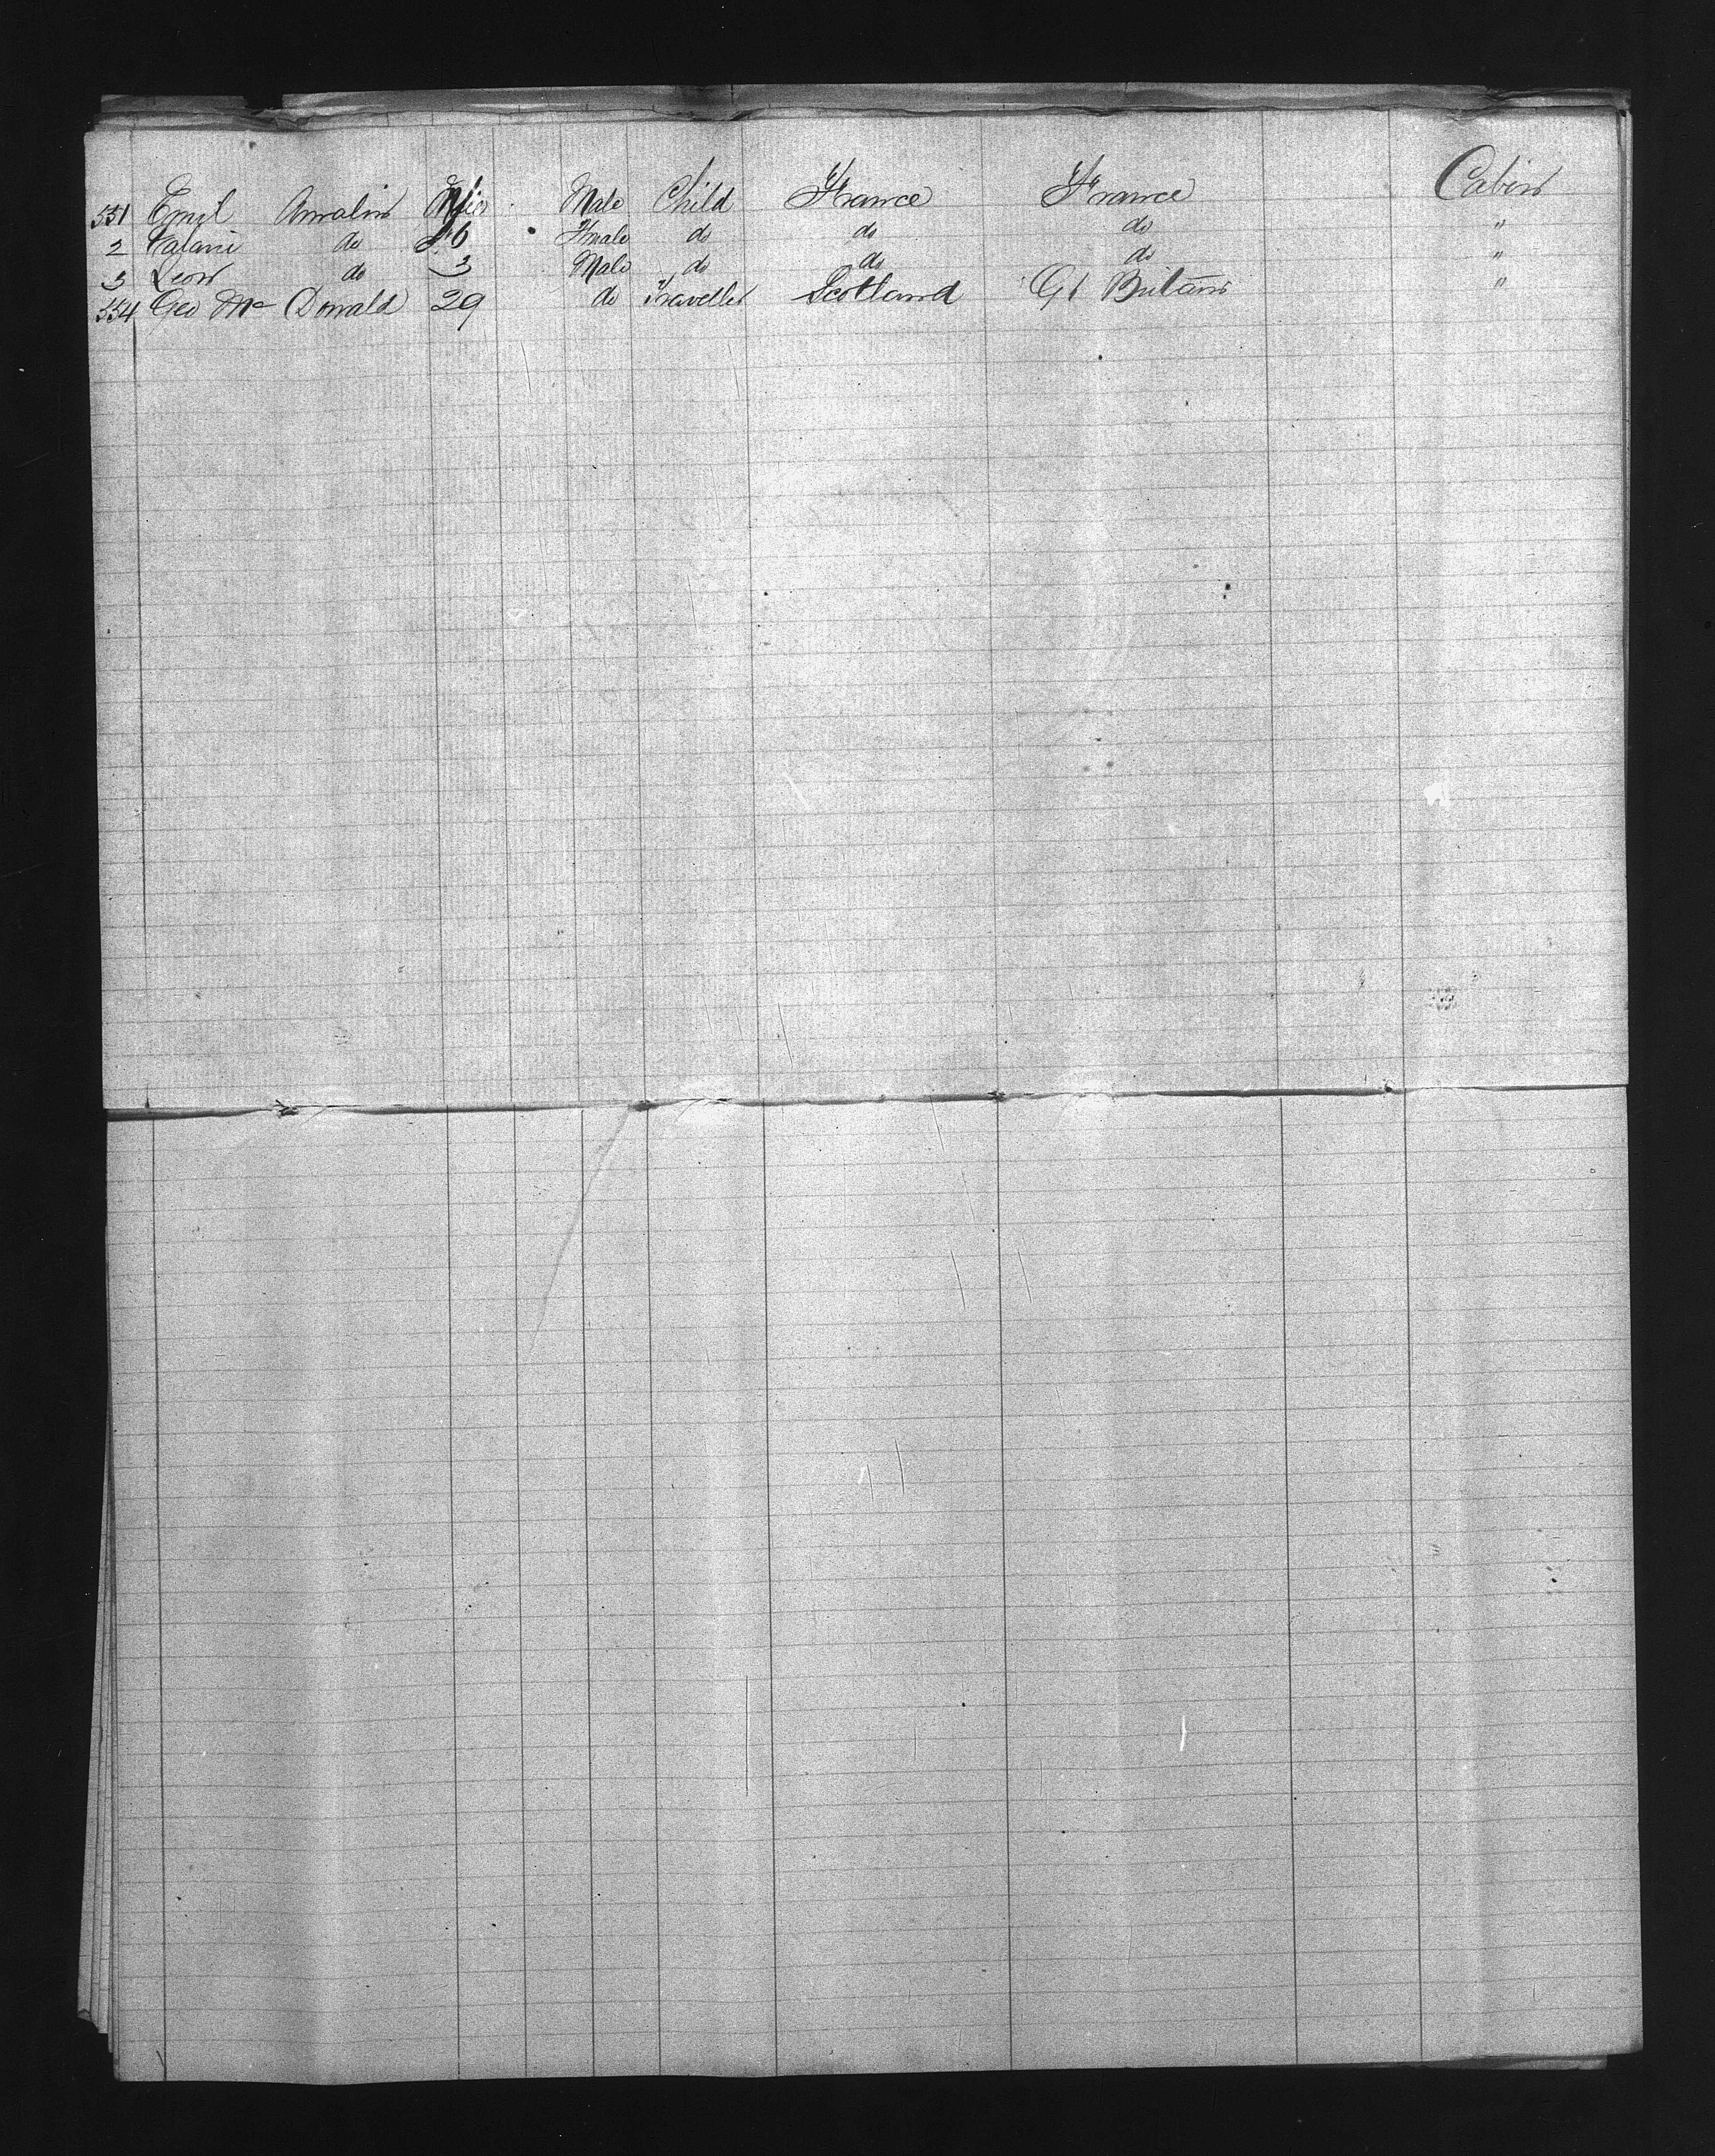 551 Emil Amalin Male Child France France Cabin
2 do 6 Female do do do "
3 Leon do 3 Male do do do "
554 Geo Mc Donald 29 do Traveller Scotland Gt Britain "